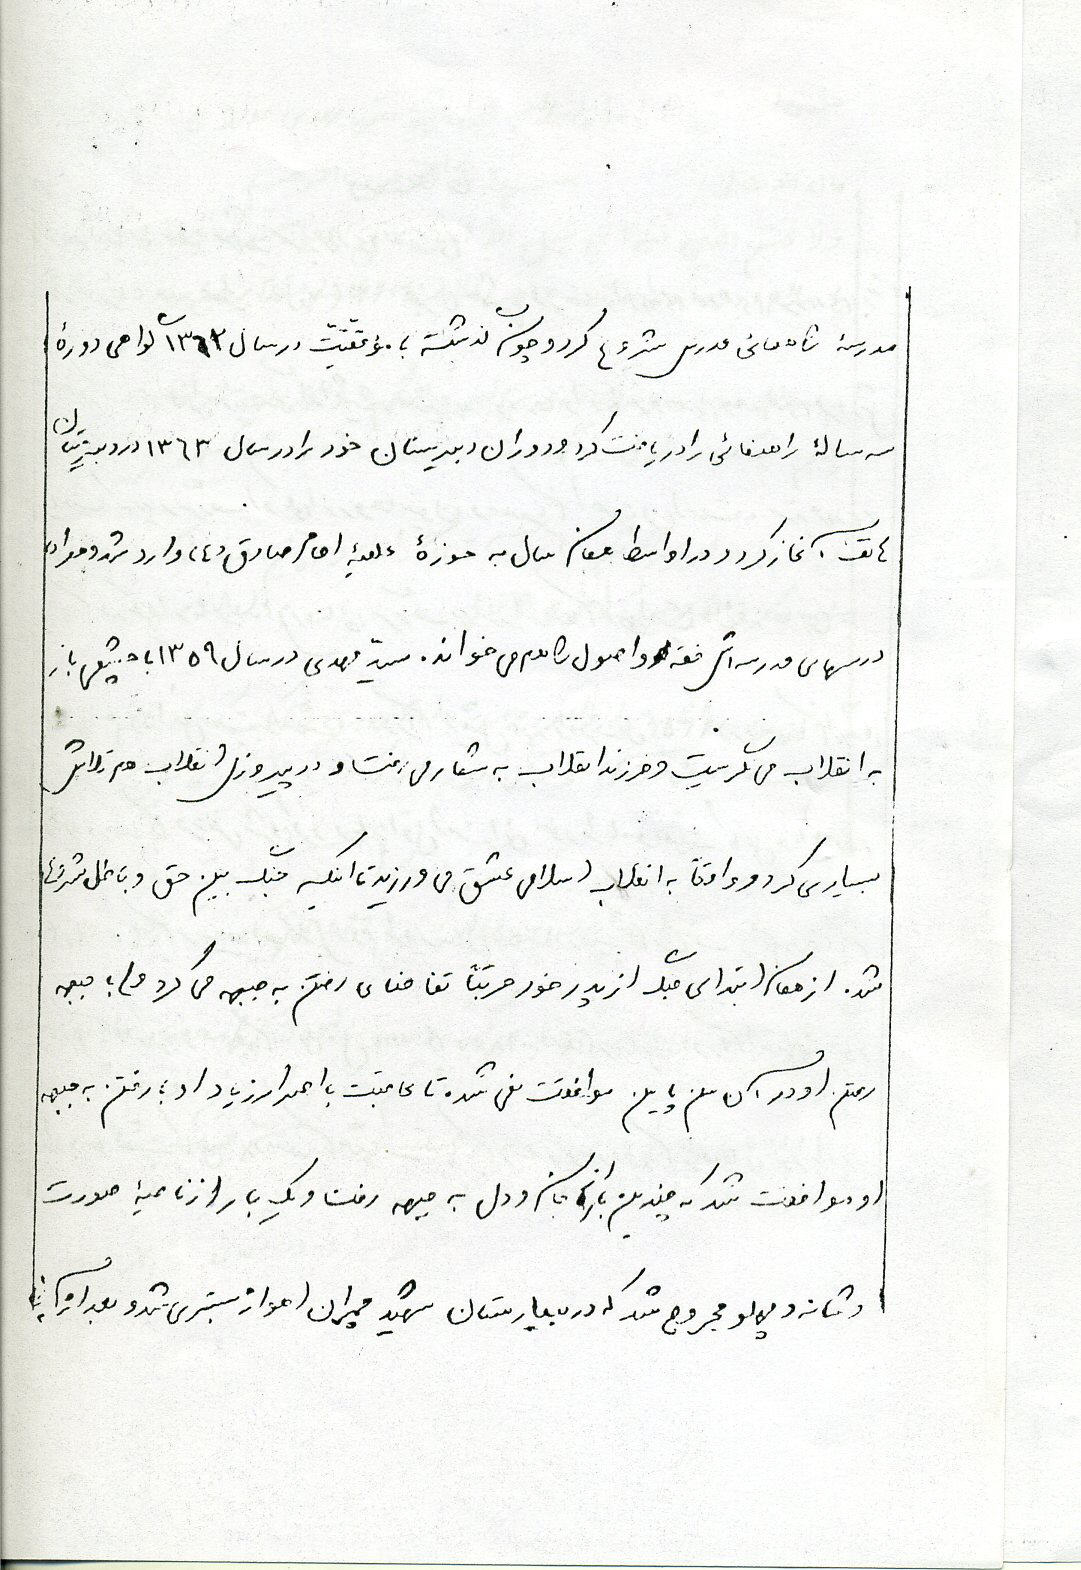 مدرسهٔ راهنمائی مدرس شروع کرد و چون گذشته با موّفقیّت در سال ۱۳۶۲ گواهی دورهٔ
سه سالهٔ راهنمائی را دریافت کرد و دوران دبیرستان خود را در سال ۱۳۶۳ در دبیرستان
آغاز کرد و در اواسط همان سال به حوزهٔ علمیهٔ امام صادق (ع) وارد شد و همراه
درسهای مدرسه اش فقه و اصول را هم می خواند. سیّد مهدی در سال ۱۳۵۹ با چشمی باز
به انقلاب می نگریست و فرزند انقلاب به شمار می رفت و در پیروزی انقلاب هم تلاش
بسیاری کرد و واقعاً به انقلاب اسلامی عشق می ورزید تا اینکه جنگ بین حق و باطل شروع
شد. از همان ابتدای جنگ از پدر خود مرتبّاً تقاضای رفتن به جبهه می کرد ولی با جبهه
رفتن او در آن سن پایین موافقت نمی شد تا عاقبت با اصرار زیاد او با رفتن به جبهه
او موافقت شد که چندین بار از جان و دل به جبهه رفت و یک بار از ناحیهٔ صورت
و شانه و پهلو مجروح شد که در بیمارستان شهید چمران اهواز بستری شد و بعد از آن که